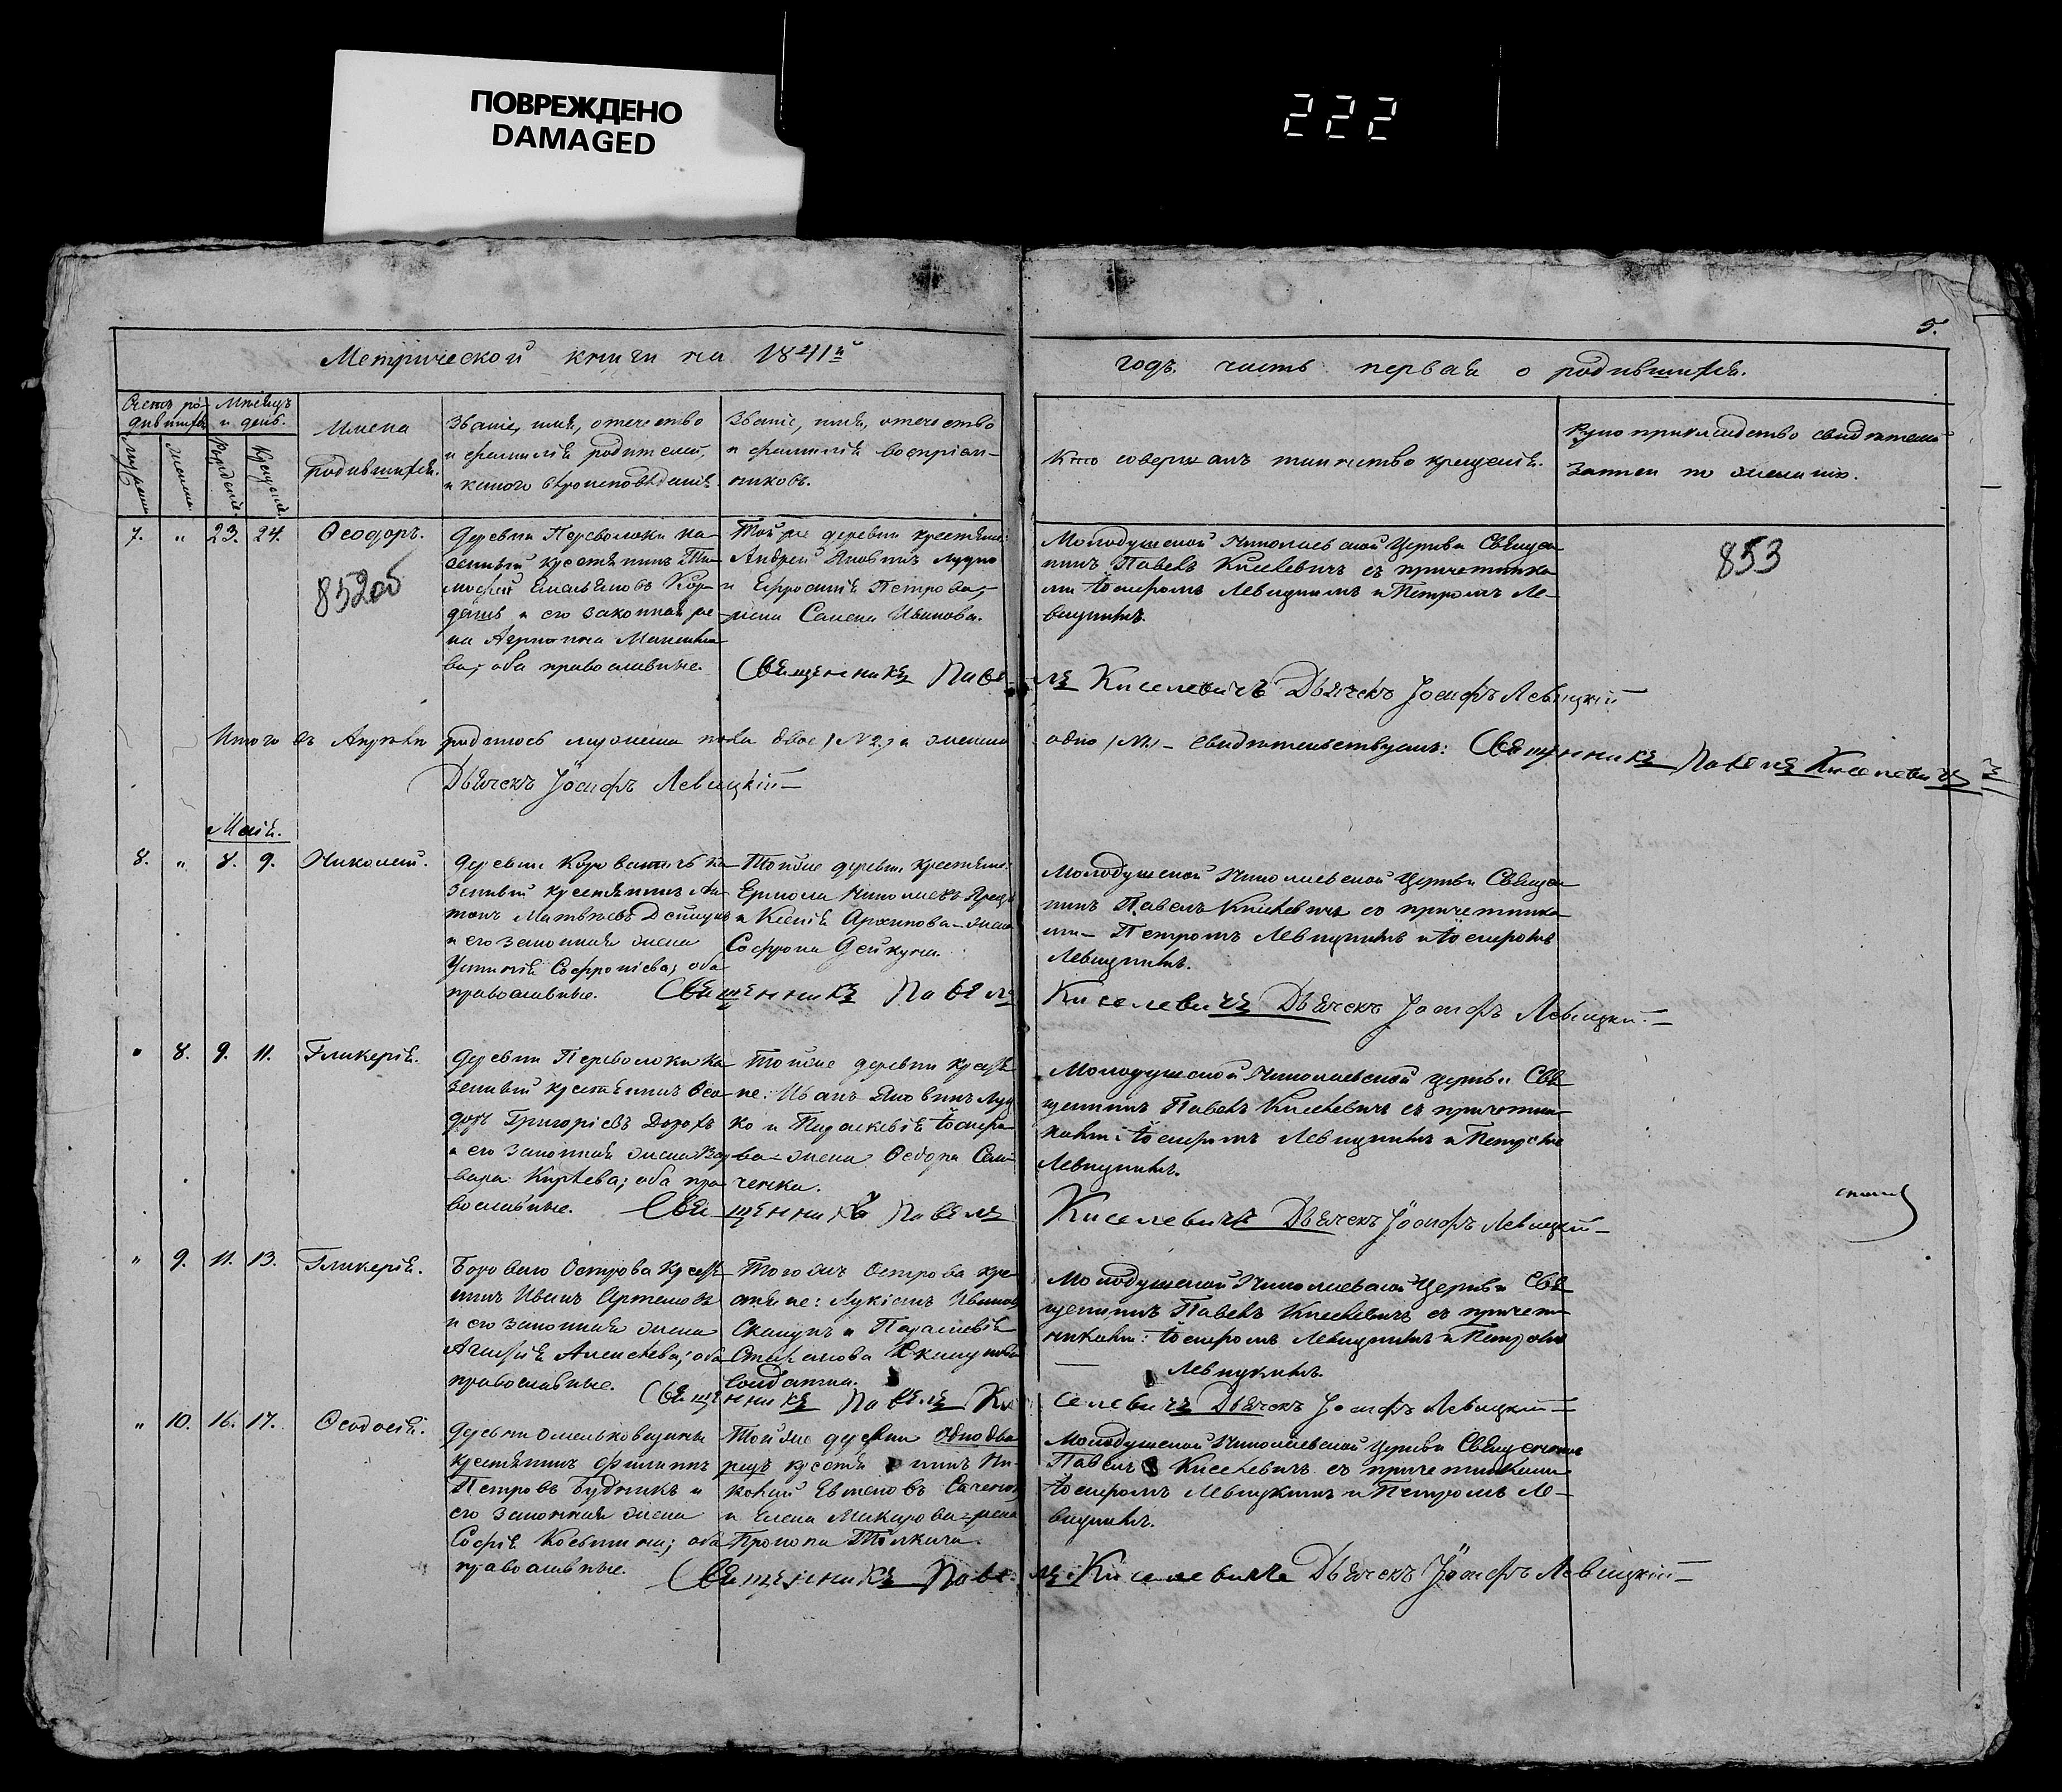 ПОВРЕЖДЕНО
DAMAGED
222
5.
Метрической книги на 1841й
годъ часть первая о родившихся.
Счетъ ро-
дившихся
Мѣсяцъ
и день.
мужеска
женска
Рожденія.
Крещенія.
Имена
родившихся.
Званіе, имя, отечество
и фамилія родителей,
и какого вѣроисповѣданія.
Званіе, имя, отечество
и фамилія воспріем-
никовъ.
Кто совершалъ таинство крещенія.
Рукоприкладство свидѣтелей
записи по желанію.
7. " 23. 24. Ѳеодоръ.
85200
Деревни Переволоки ка-
зенный крестьянинъ Ти-
мофей Емельяновъ
и его законная же-
на Агрипина
ва; оба православные.
Той же деревни крестьяне:
Андрей Яковлевъ
и Ефросинія Петрова,-
жена Семена Иванова.
Молодушской Николаевской Церкви Священ-
никъ Павелъ Киселевичъ съ причетника-
ми Іосифомъ Левицкимъ и Петромъ Ле-
вицкимъ.
853
Священникъ Павелъ Киселевичъ Дьячекъ Іосифъ Левицкій
Итого въ Апрѣлѣ родилось мужеска пола двое /№ 2/ а женска одно /№1/ - свидѣтельствуемъ: Священникъ Павелъ Киселевичъ
Дьячекъ Іосифъ Левицкій
Маія.
8. " 8. 9. Николай.
Деревни Короватичъ ка-
зенный крестьянинъ Ан-
тонъ Матвѣевъ
и его законная жена
Устинія Софроніева; оба
православные.
Той же деревни крестьяне:
Ермола Николаевъ
и Ксенія Архипова - жена
Софрона Дейкуна.
Молодушской Николаевской Церкви Священ-
никъ Павелъ Киселевичъ со причетника-
ми - Петромъ Левицкимъ и Іосифомъ
Левицкимъ.
Священникъ Павелъ Киселевичъ Дьячекъ Іосифъ Левицкій
" 8. 9. 11. Гликерія.
Деревни Переволоки ка-
зенный крестьянинъ Ѳео-
доръ Григоріевъ Дорохъ
и его законная жена Вар-
вара Кирѣева; оба пра-
вославные.
Той же деревни крестья-
не: Иванъ
ко и Параскевія Іосифо-
ва - жена Ѳедора
ченка.
Молодушской Николаевской Церкви Свя-
щенникъ Павелъ Киселевичъ съ причетни-
ками: Іосифомъ Левицкимъ и Петромъ
Левицкимъ.
Священникъ Павелъ Киселевичъ Дьячекъ Іосифъ Левицкій
" 9. 11. 13. Гликерія.
Острова крестья-
нинъ Иванъ Артемовъ
и его законная жена
Агафія Алексѣева; оба
православные.
Того же Острова кре-
стьяне: Лукіанъ Ивановъ
Скакунъ и Параскевія
солдатка.
Молодушской Николаевской Церкви Свя-
щенникъ Павелъ Киселевичъ съ причет-
никами: Іосифомъ Левицкимъ и Петромъ
Левицкимъ.
Священникъ Павелъ Киселевичъ Дьячекъ Іосифъ Левицкій
" 10. 16. 17. Ѳеодосія.
Деревни Омельковщины
крестьянинъ Филиппъ
Петровъ Будникъ и
его законная жена
Софія Косьмина; оба
православные.
Той же деревни однодво-
рецъ крестьянинъ Ни-
Евменовъ
и Елена Макарова - жена
Прокопа Толкача.
Молодушской Николаевской Церкви Священникъ
Павелъ Киселевичъ съ причетниками
Іосифомъ Левицкимъ и Петромъ Ле-
вицкимъ.
Священникъ Павелъ Киселевичъ Дьячекъ Іосифъ Левицкій